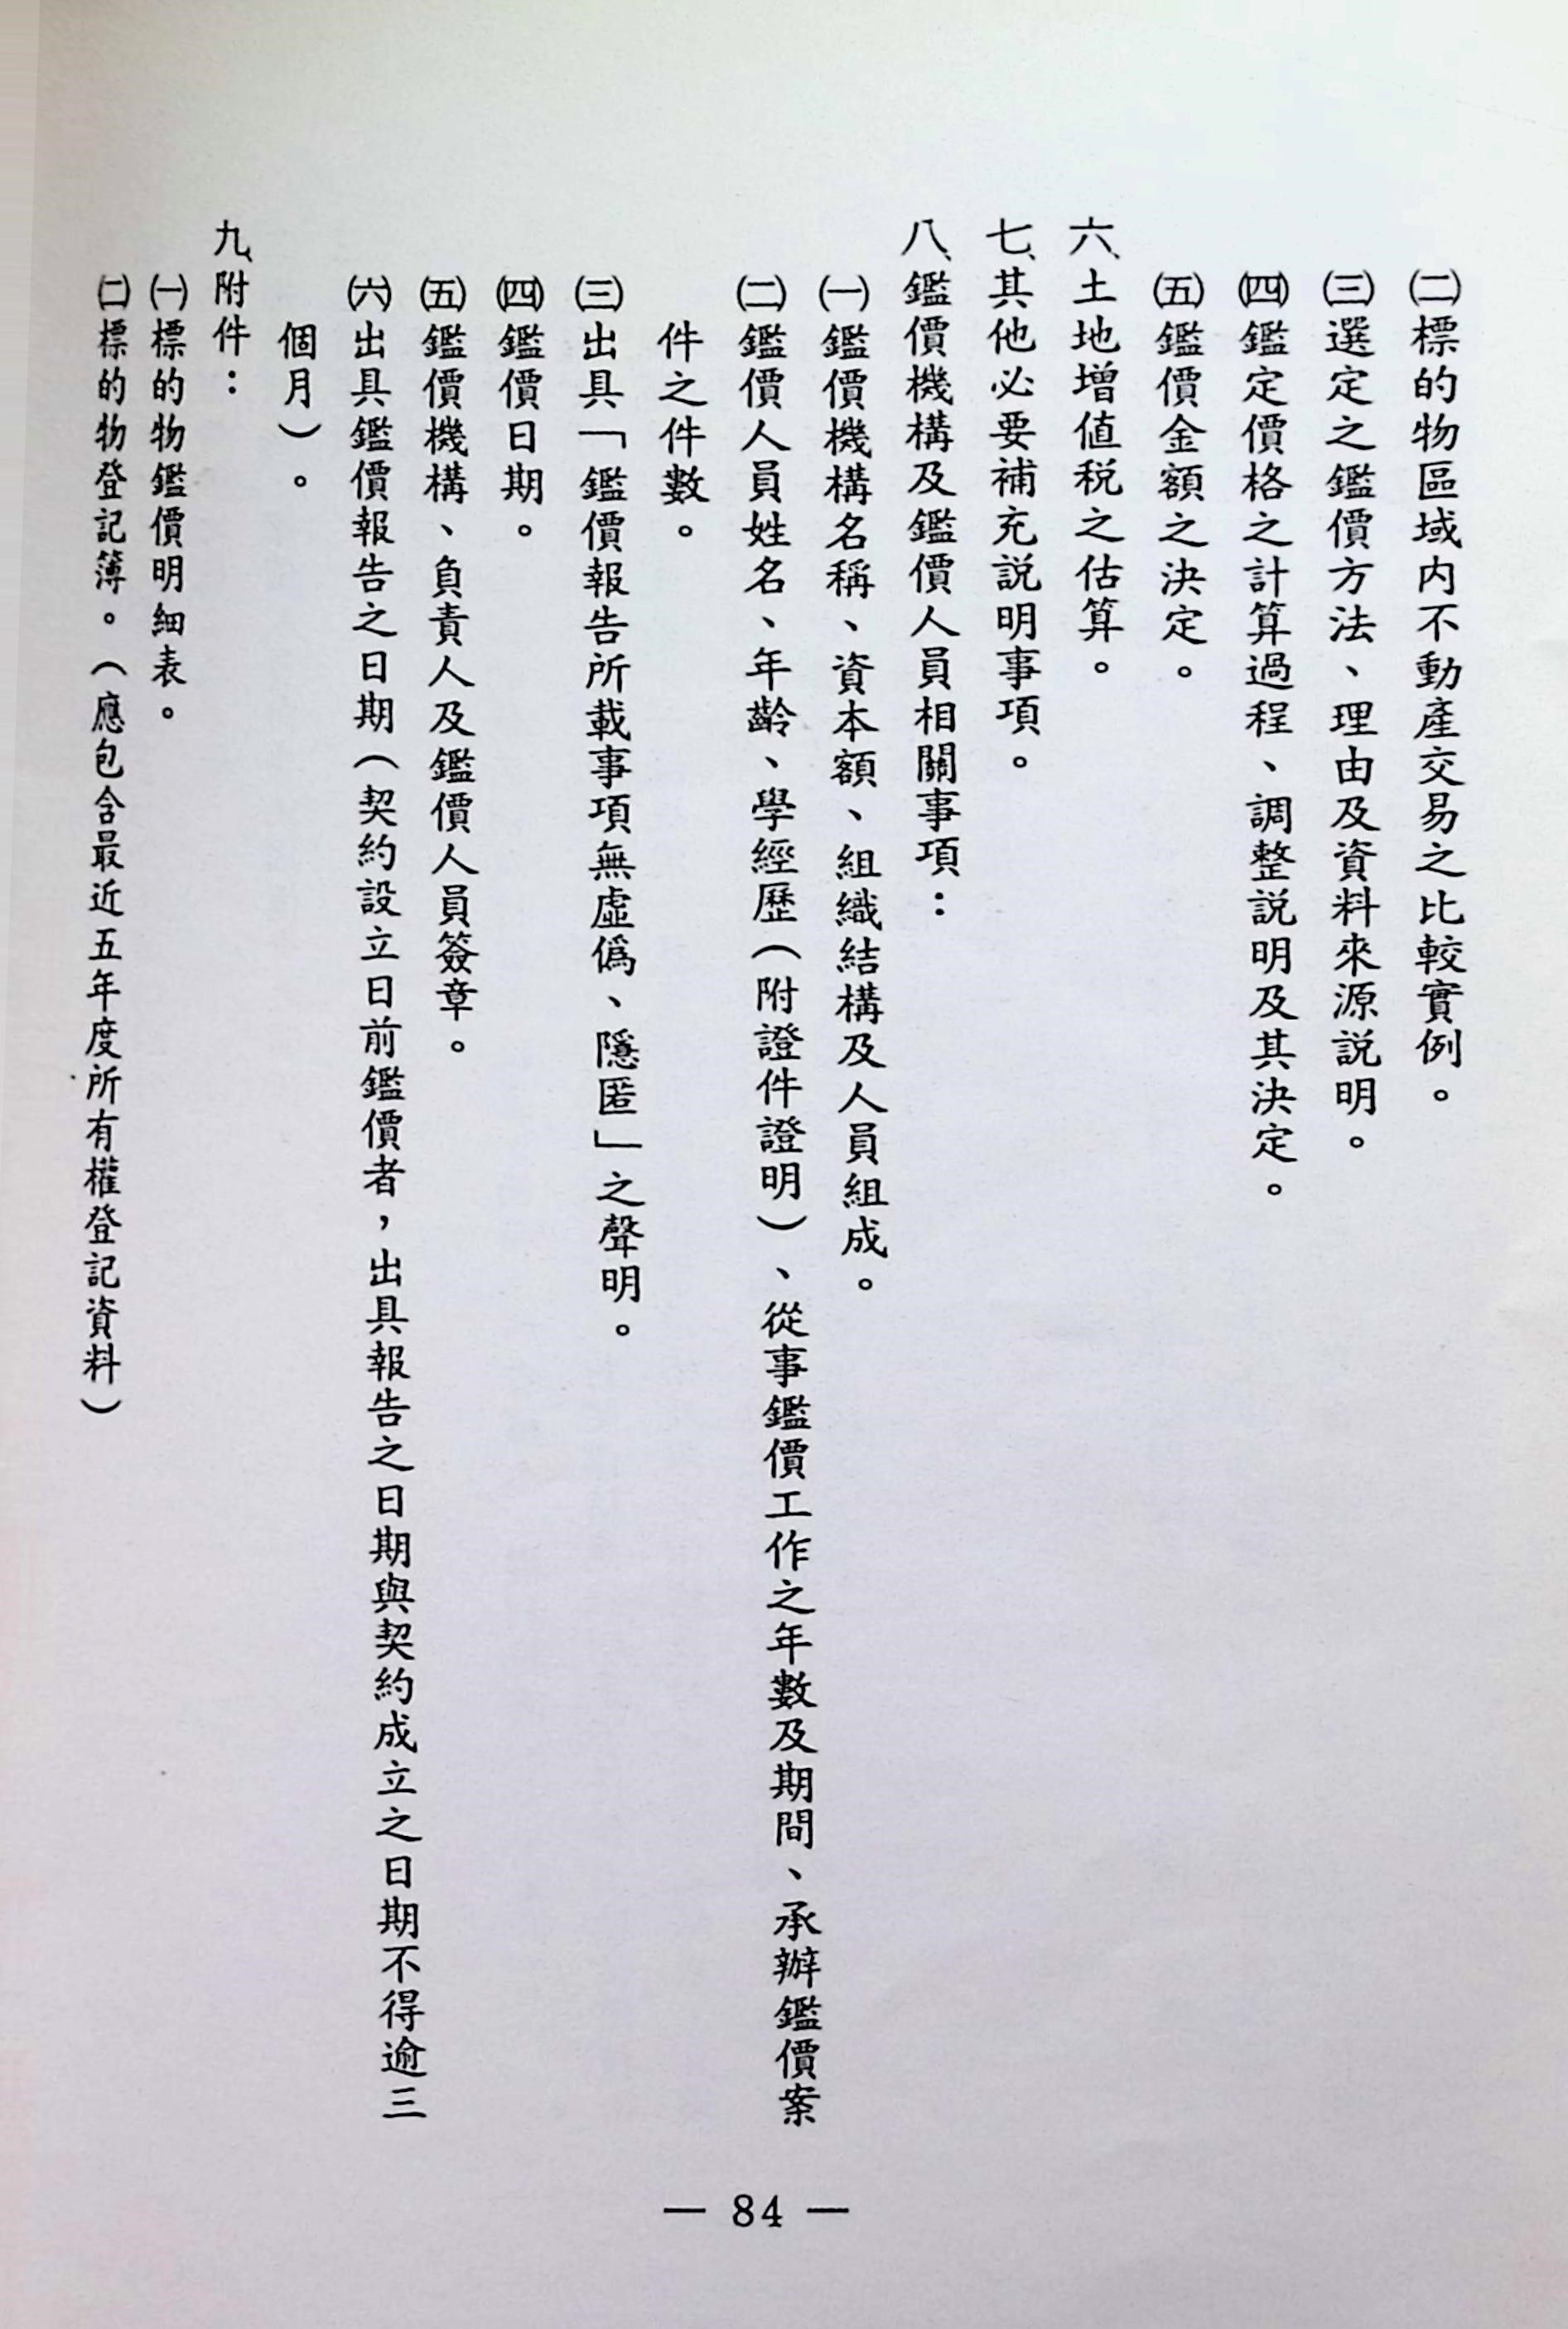 ㈡標的物區域内不動產交易之比較實例。
㈢選定之鑑價方法、理由及資料來源説明。
㈣鑑定價格之計算過程、調整説明及其決定。
㈤鑑價金額之決定。
六、土地增值税之估算。
七、其他必要補充説明事項。
八、鑑價機構及鑑價人員相關事項：
㈠鑑價機構名稱、資本額、組織結構及人員組成。
㈡鑑價人員姓名、年齡、學經歷（附證件證明）、從事鑑價工作之年數及期間、承辦鑑價案
件之件數。
㈢出具「鑑價報告所載事項無虛偽、隱匿」之聲明。
㈣鑑價日期。
㈤鑑價機構、負責人及鑑價人員簽章。
㈥出具鑑價報告之日期（契約設立日前鑑價者，出具報告之日期與契約成立之日期不得逾三
個月）。
九、附件：
㈠標的物鑑價明細表。
㈡標的物登記簿。（應包含最近五年度所有權登記資料）
— 84 —